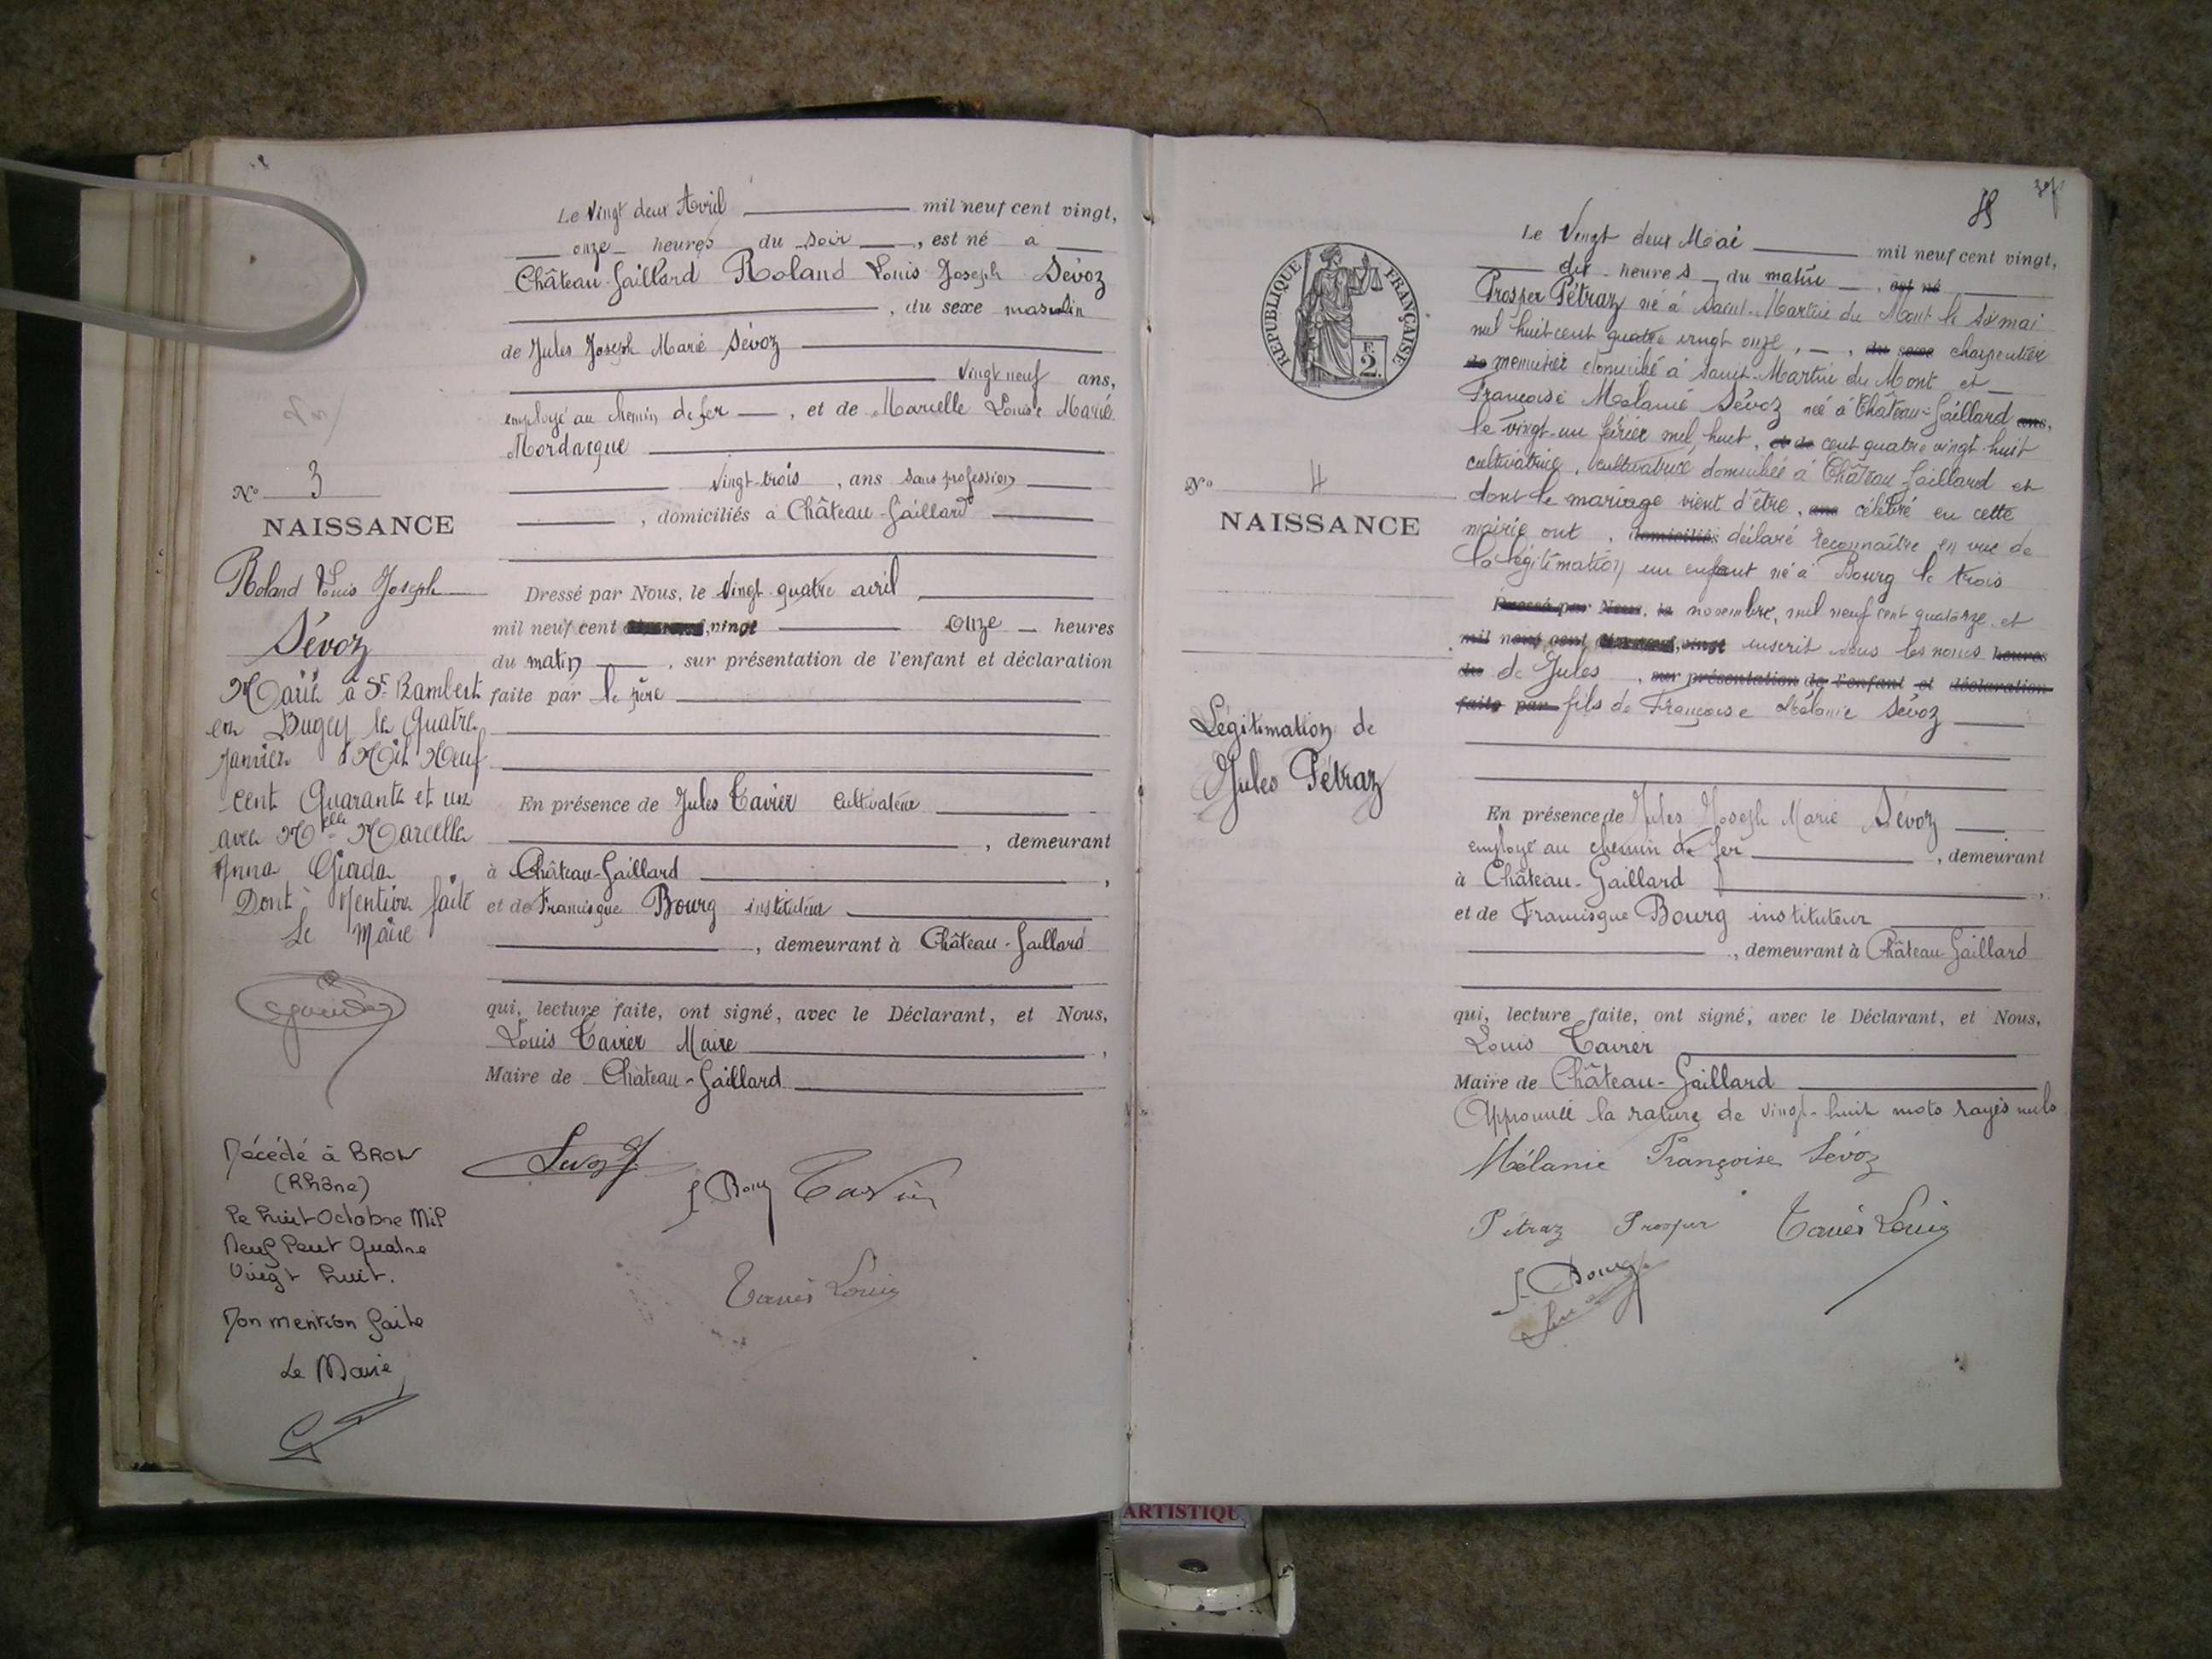 Le Vingt deux Avril mil neuf cent vingt,
onze heures du soir , est né a
Château-Gaillard Roland Louis Joseph Sévoz
, du sexe masculin
de Jules Joseph Marie Sévoz
Vingt neuf ans,
employé au chemin de fer , et de Marcelle Louise Marie
Mordacque
vingt-trois , ans sans profession
, domiciliés à Château-Gaillard
Dressé par Nous, le Vingt quatre avril
mil neuf cent vingt Onze heures
du matin , sur présentation de l'enfant et déclaration
faite par le père
En présence de Jules Tavier Cultivateur
, demeurant
à Château-Gaillard ,
et de Francisque Bourg instituteur
, demeurant à Château-Gaillard
qui, lecture faite, ont signé, avec le Déclarant, et Nous,
Louis Tavier Maire ,
Maire de Château-Gaillard
F Bourg Tavier
Tavier Louis
No 3
NAISSANCE
Roland Louis Joseph
Sévoz
Marié à St Rambert
en Bugey le Quatre
Janvier Mil Neuf
cent Quarante et un
avec Melle Marcelle
Anna Giorda
Dont Mention faite
Le Maire
Décédé à BRON
(Rhône)
le huit Octobre Mil
Neuf Cent Quatre
Vingt huit.
Don mention faite
Le Maire
REPUBLIQUE FRANÇAISE
F.
2.
No 4
NAISSANCE
Légitimation de
Jules Pétraz
Le Vingt deux Mai mil neuf cent vingt,
dix heures du matin , est né
Prosper Pétraz né à Saint-Martin du Mont le six mai
mil huit cent quatre vingt onze, , du sexe charpentier
de menuisier domicilié à Saint-Martin du Mont et
Françoise Mélanie Sévoz née à Château-Gaillard ans,
le vingt-un février mil huit, et de cent quatre vingt-huit
cultivatrice, cultivatrice domiciliée à Château Gaillard et
dont le mariage vient d'être, ans célébré en cette
mairie ont , domiciliés déclaré reconnaître en vue de
la légitimation un enfant né à Bourg le trois
Dressé par Nous, le novembre, mil neuf cent quatorze et
mil neuf cent vingt inscrit sous les noms heures
du de Jules , sur présentation de l'enfant et déclaration
faite par fils de Françoise Mélanie Sévoz
En présence de Jules Joseph Marie Sévoz
employé au chemin de fer , demeurant
à Château-Gaillard ,
et de Francisque Bourg instituteur
, demeurant à Château-Gaillard
qui, lecture faite, ont signé, avec le Déclarant, et Nous,
Louis Tavier
Maire de Château-Gaillard
Approuvé la rature de vingt-huit mots rayés nuls
Mélanie Françoise Sévoz
Pétraz Prosper Tavier Louis
F. Bourg
ARTISTIQU